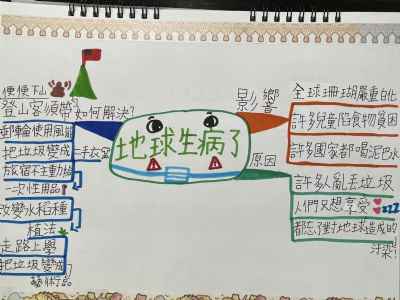 地球生病了
影響
全球珊瑚嚴重白化
許多兒童陷食物貧困
許多國家都喝泥巴水
原因
許多人亂丟垃圾
人們又想享受
都忘了對地球造成的
汙染!
如何解決?
便便下山
登山客須帶
郵輪使用風能
把垃圾變成
二手衣
旅宿不主動給
一次性用品
改變水稻種
植法
走路上學
把垃圾變成
藝術品